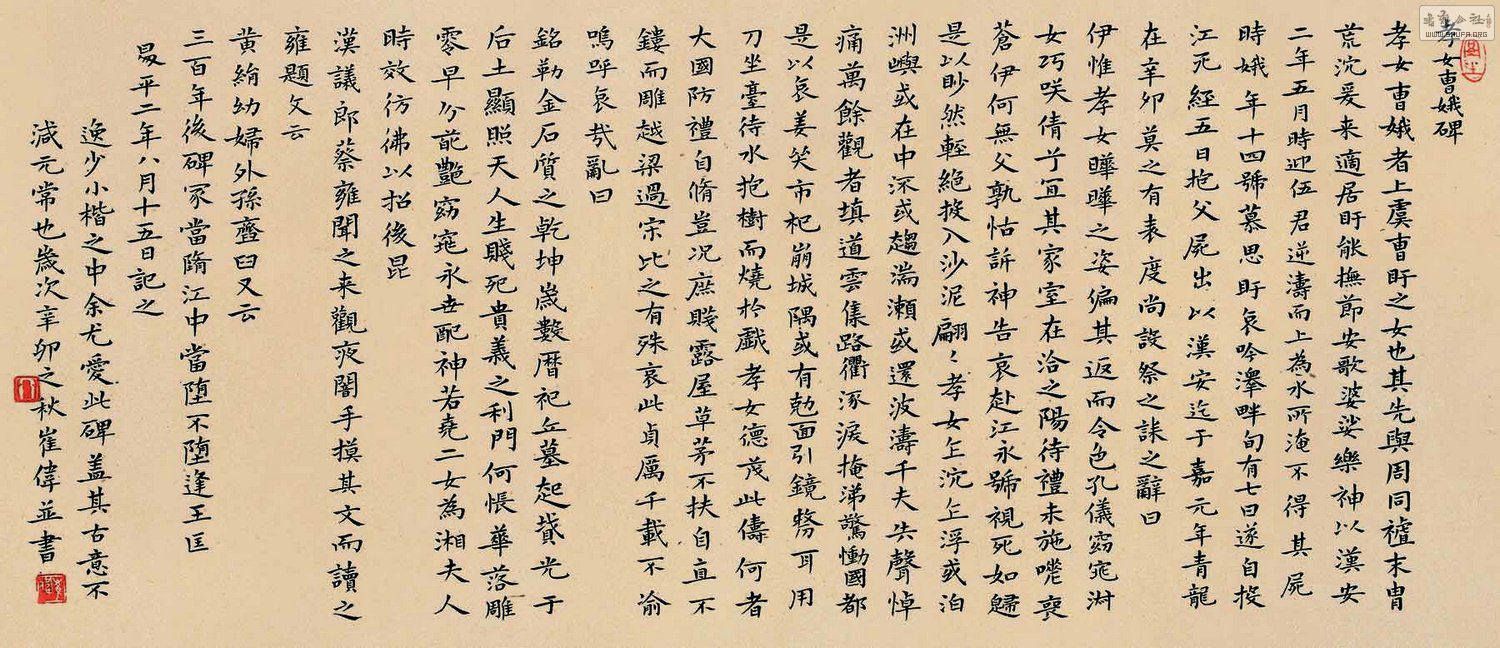 孝女曹娥碑
孝女曹娥者上虞曹盱之女也其先與周同襢末胄
荒沉爰来適居盱能撫節安歌婆娑樂神以漢安
二年五月時迎伍君逆濤而上為水所淹不得其屍
時娥年十四號慕思盱哀吟澤畔旬有七日遂自投
江死經五日抱父屍出以漢安迄于嘉元年青龍
在辛卯莫之有表度尚設祭之誄之辭曰
伊惟孝女曄曄之姿偏其返而令色孔儀窈窕淑
女巧咲倩兮宜其家室在洽之陽待禮未施嗟喪
蒼伊何無父孰怙訴神告哀赴江永號視死如歸
是以眇然輕絕投入沙泥翩〻孝女乍沉乍浮或泊
洲嶼或在中流或趨湍瀨或還波濤千夫失聲悼
痛萬餘觀者填道雲集路衢流淚掩涕驚慟國都
是以哀姜哭市杞崩城隅或有剋面引鏡剺耳用
刀坐臺待水抱樹而燒於戲孝女德茂此儔何者
大國防禮自脩豈况庶賤露屋草茅不扶自直不
鏤而雕越梁過宋比之有殊哀此貞厲千載不渝
嗚呼哀哉亂曰
銘勒金石質之乾坤歲數曆祀丘墓起墳光于
后土顯照天人生賤死貴義之利門何悵華落雕
零早分葩艷窈窕永世配神若堯二女為湘夫人
時效彷彿以招後昆
漢議郎蔡雍聞之来觀夜闇手摸其文而讀之
雍題文云
黄絹幼婦外孫齏臼又云
三百年後碑冢當隋江中當墮不墮逢王匡
昇平二年八月十五日記之
逸少小楷之中余尤愛此碑盖其古意不
減元常也歲次辛卯之秋崔偉並書
WWW.SHUFA.ORG